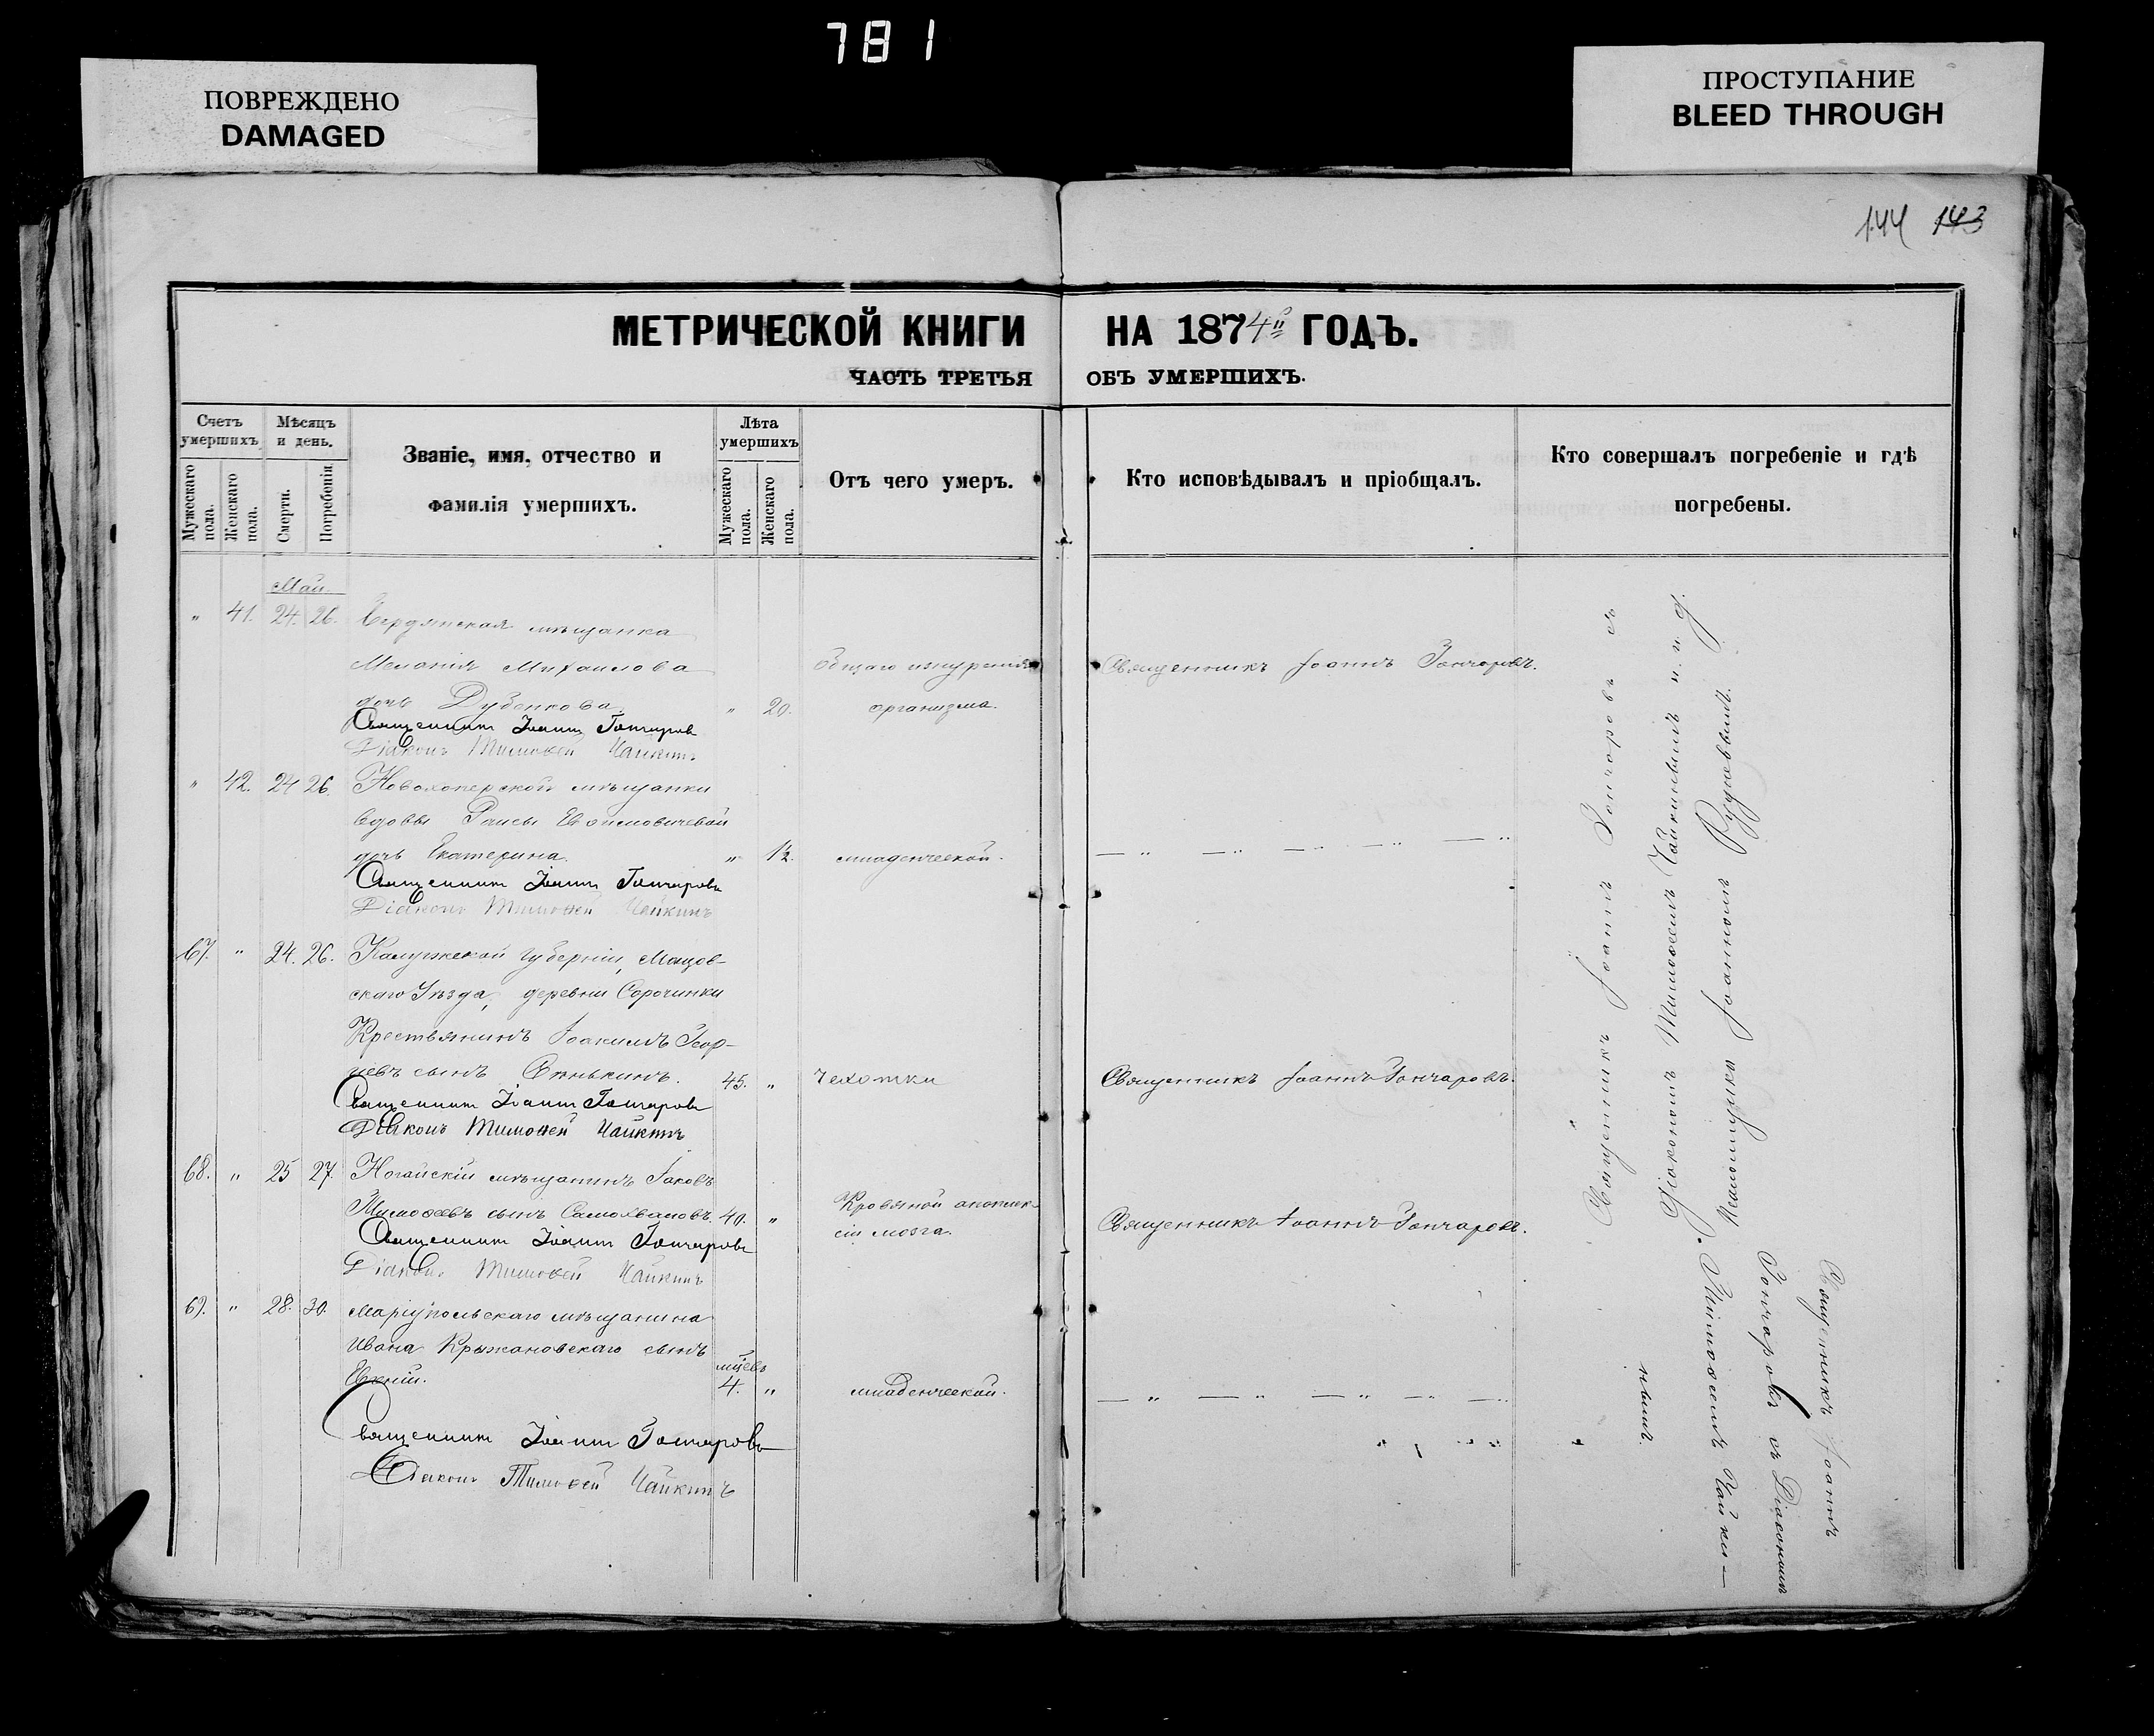 781
ПОВРЕЖДЕНО
DAMAGED
ПРОСТУПАНИЕ
BLEED THROUGH
144 143
МЕТРИЧЕСКОЙ КНИГИ НА 1874й ГОДЪ.
ЧАСТЬ ТРЕТЬЯ ОБЪ УМЕРШИХЪ.
Счетъ умершихъ
Мужескаго пола.
Женскаго пола.
Мѣсяцъ и день.
Смерти.
Погребенія
Званіе, имя, отчество и
фамилія умершихъ.
Лѣта умершихъ
Мужескаго пола.
Женскаго пола.
Отъ чего умеръ.
Кто исповѣдывалъ и пріобщалъ.
Кто совершалъ погребеніе и гдѣ
погребены.
Май.
" 41. 24. 26. Бердянская мѣщанка
Меланія Михаилова Общаго изнуренія Священникъ Іоаннъ Гончаровъ.
дочь Дубенкова. " 20. организма.
Священникъ Іоаннъ Гончаровъ
Діаконъ Тимофей Чайкинъ
" 42. 24 26. Новохоперской мѣщанки
вдовы Раисы
дочь Екатерина. " 1/2. младенческой. — " — " — " — " — "
Священникъ Іоаннъ Гончаровъ
Діаконъ Тимофей Чайкинъ
67. " 24. 26. Калужской губерніи, Мащов-
скаго Уѣзда, деревни Сорочинки
Крестьянинъ Іоакимъ Геор-
гіевъ сынъ 45. " Чахотки Священникъ Іоаннъ Гончаровъ.
Священникъ Іоаннъ Гончаровъ
Діаконъ Тимофей Чайкинъ
68. " 25 27. Ногайскій мѣщанинъ Іаковъ
Тимофеевъ сынъ Самохваловъ. 40. " Кровяной апоплек-
сіи мозга. Священникъ Іоаннъ Гончаровъ.
Священникъ Іоаннъ Гончаровъ
Діаконъ Тимофей Чайкинъ
69. " 28. 30. Маріупольскаго мѣщанина
Ивана Крыжановскаго сынъ
мцевъ
4. " младенческой. — " — " — " — " — "
Священникъ Іоаннъ Гончаровъ
Діаконъ Тимофей Чайкинъ
Священникъ Іоаннъ Гончаровъ съ
Діакономъ Тимофеемъ Чайкинымъ и. и. д.
Іоанномъ
Священникъ Іоаннъ
Гончаровъ съ Діакономъ
Тимофеемъ Чайки—
нымъ.